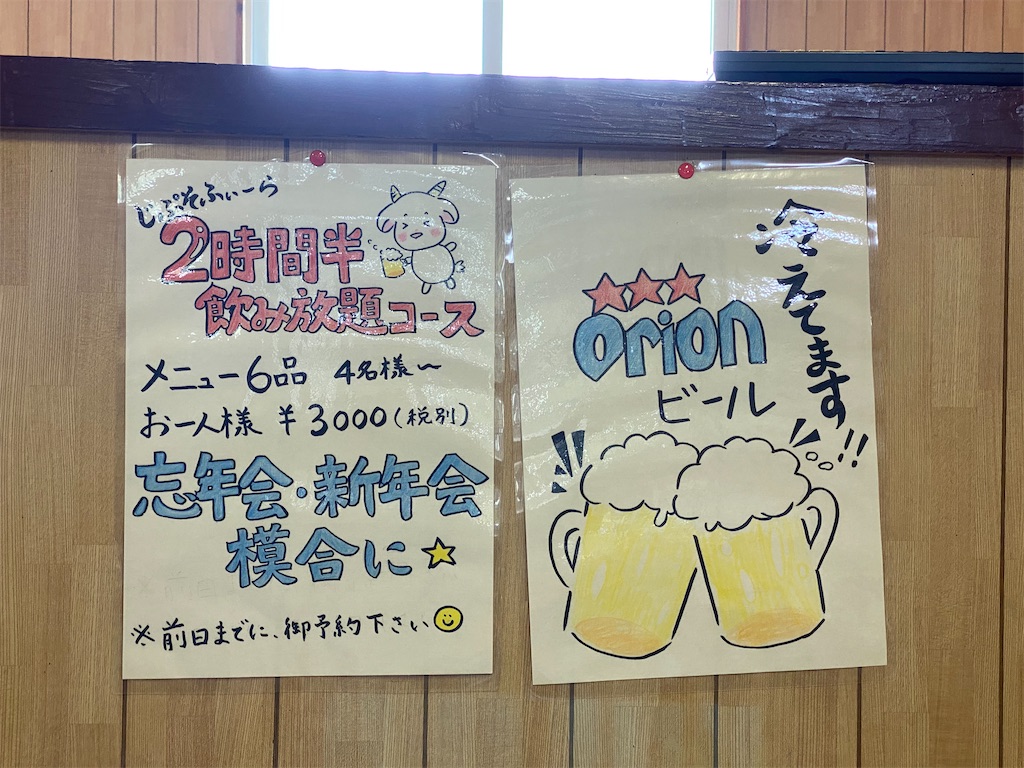 じぷそふぃーら
2時間半
飲み放題コース
メニュー6品 4名様〜
お一人様 ¥3000(税別)
忘年会・新年会
模合に☆
※前日までに、御予約下さい
冷えてます!!
orion
ビール